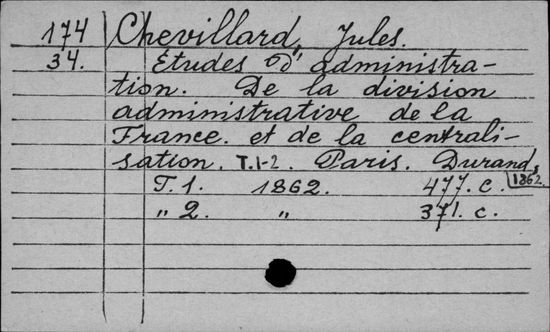 174 Chevillard, Jules.
34. Études d'administra-
tion. De la division
administrative de la
France. et de la centrali-
sation. T.1-2. Paris. Durand,
1862
T. 1. 1862. 477. c.
„ 2. „ 371. c.